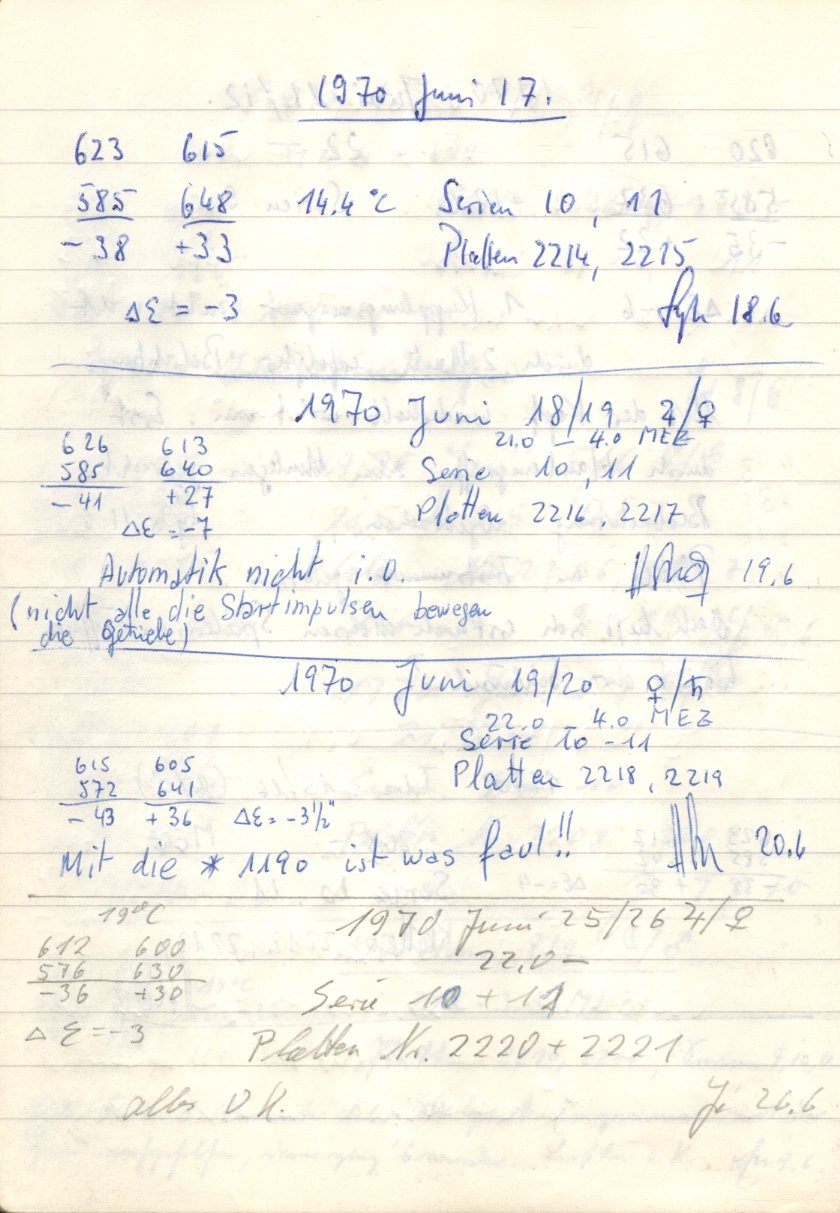 1970 Juni 17.
623 615
585 648 14.4 °C Serien 10, 11
-38 +33 Platten 2214, 2215
ΔΣ = -3 18.6
1970 Juni 18/19 ♃/♀
21.0 - 4.0 MEZ
626 613
585 640 Serie 10, 11
-41 +27 Platten 2216, 2217
ΔΣ = -7
Automatik nicht i.O. 19.6
(nicht alle die Startimpulsen bewegen
die Getriebe)
1970 Juni 19/20 ♀/♄
22.0 - 4.0 MEZ
Serie 10-11
615 605 Platten 2218, 2219
572 641
-43 +36 ΔΣ = -3½" 20.6
Mit die * 1190 ist was faul!!
19°C 1970 Juni 25/26 ♃/♀
612 600 22.0 -
576 630
-36 +30 Serie 10 + 11
ΔΣ = -3 Platten Nr. 2220 + 2221
alles O.K. 26.6